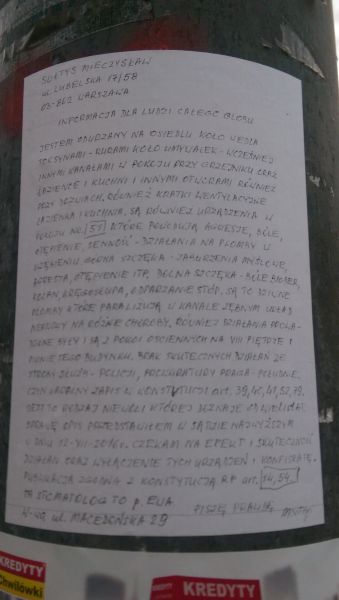 SOŁTYS MIECZYSŁAW
ul. LUBELSKA 17/58
03-802 WARSZAWA
INFORMACJA DLA LUDZI CAŁEGO GLOBU
JESTEM ODURZANY NA OSIEDLU KOŁO WEDLA
TOKSYNAMI - RURAMI KOŁO UMYWALEK - WCZEŚNIEJ
INNYMI KANAŁAMI W POKOJU PRZY GRZEJNIKU ORAZ
ŁAZIENCE I KUCHNI I INNYMI OTWORAMI RÓWNIEŻ
PRZY DRZWIACH, RÓWNIEŻ KRATKI WENTYLACYJNE
ŁAZIENKA I KUCHNIA. SĄ RÓWNIEŻ URZĄDZENIA W
POKOJU NR. 57 KTÓRE POWODUJĄ AGRESJĘ, BÓLE,
OTĘPIENIE, SENNOŚĆ - DZIAŁANIA NA PLOMBY W
UZĘBIENIU. GÓRNA SZCZĘKA - ZABURZENIA MYŚLOWE,
AGRESJA, OTĘPIENIE ITP. DOLNA SZCZĘKA - BÓLE BIODER,
KOLAN, KRĘGOSŁUPA, ODPARZANIE STÓP. SĄ TO DZIWNE
PLOMBY KTÓRE PARALIŻUJĄ W KANALE ZĘBNYM UKŁAD
NERWOWY NA RÓŻNE CHOROBY. RÓWNIEŻ DZIAŁANIA
BYŁY I SĄ Z POKOI OŚCIENNYCH NA VIII PIĘTRZE I
PIONIE TEGO BUDYNKU. BRAK SKUTECZNYCH DZIAŁAŃ ZE
STRONY SŁUŻB - POLICJI, PROKURATURY PRAGA-POŁUDNIE.
ZAPIS W KONSTYTUCJI art. 39, 40, 41, 52, 79.
JEST TO RODZAJ NIEWOLI KTÓREJ DOZNAJĘ OD WIELU LAT.
SPRAWĘ OPIS PRZEDSTAWIŁEM W SĄDZIE NAJWYŻSZYM
W DNIU 12-VII-2016r. CZEKAM NA EFEKT I SKUTECZNOŚĆ
DZIAŁAŃ ORAZ WYŁĄCZENIE TYCH URZĄDZEŃ I KONFISKATĘ.
PUBLIKACJA ZGODNA Z KONSTYTUCJĄ RP art. 14, 54.
STOMATOLOG TO p. EWA
W-WA, ul. MACEDOŃSKA 29 PISZĘ PRAWDĘ
KREDYTY
Chwilówki
KREDYTY